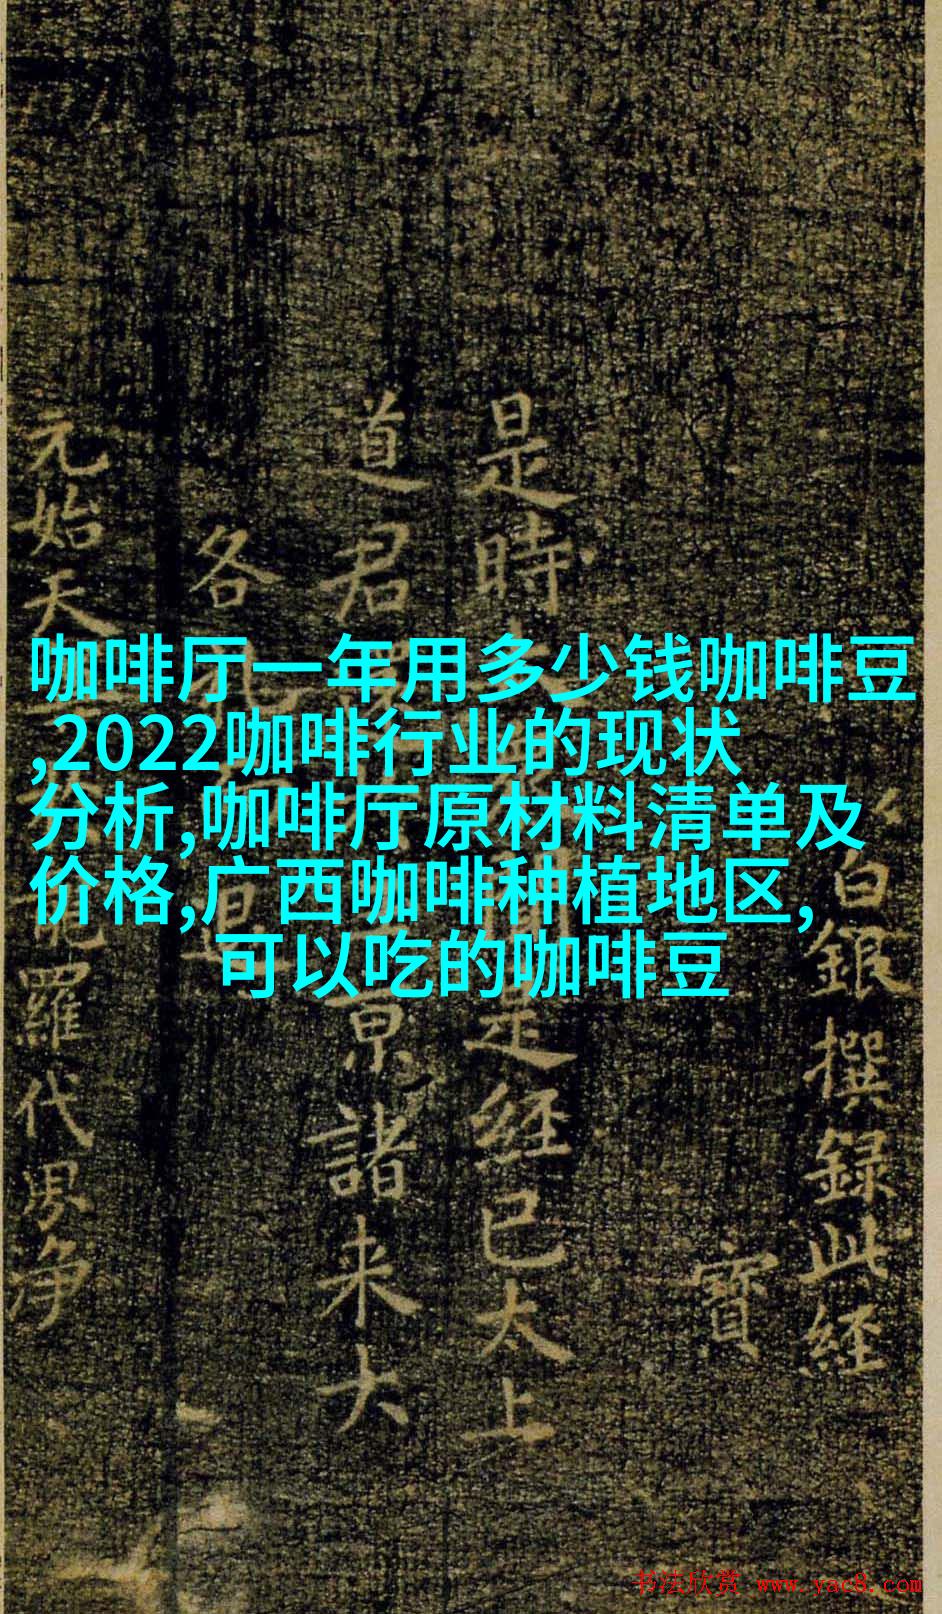 咖啡厅一年用多少钱咖啡豆
,2022咖啡行业的现状
分析,咖啡厅原材料清单及
价格,广西咖啡种植地区,
可以吃的咖啡豆
白銀撰録此經
寶
是時
是經已太上
道君
京諸来大
各
元始天
羅代界净
书法欣赏 www.yac8.com